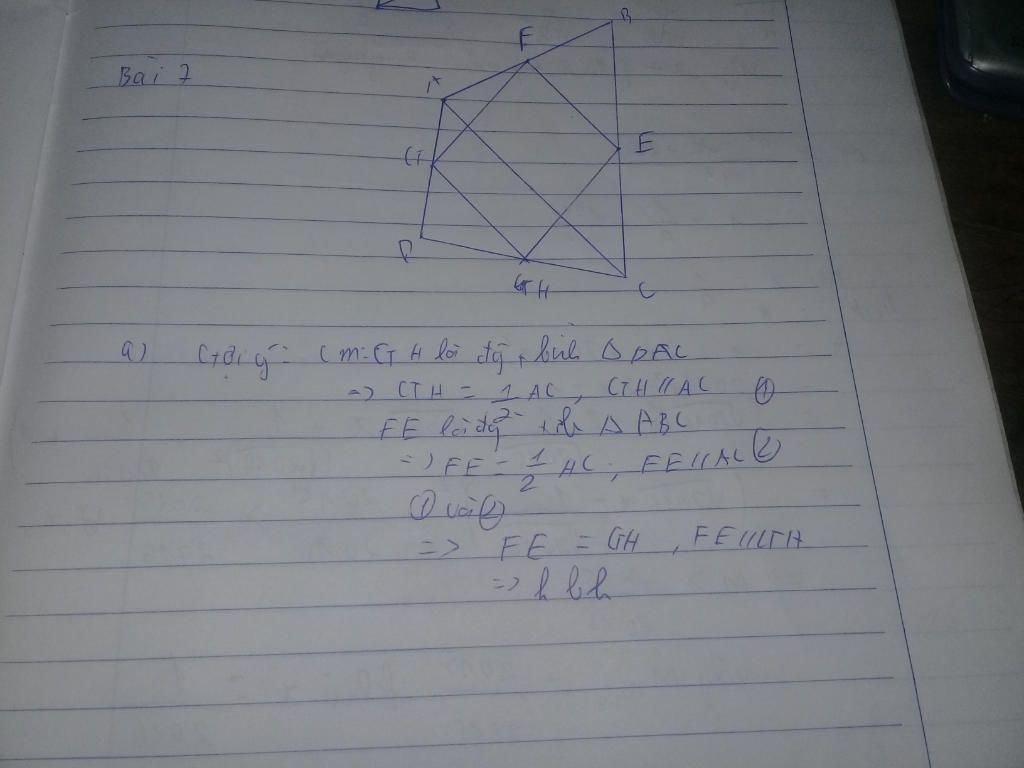 F
B
Bài 7
A
G
E
D
H
C
a) Gợi ý: Cm: GH là đg tr bình Δ DAC
=> GH = 1/2 AC, GH // AC ①
FE là đg tr b Δ ABC
=> FE = 1/2 AC; FE // AC ②
① và ②
=> FE = GH, FE // GH
=> hbh